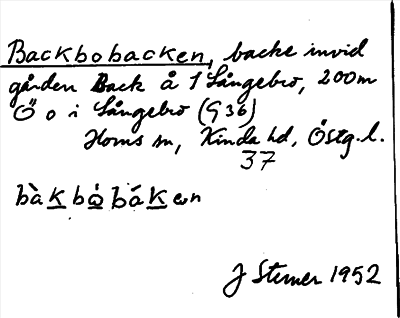 Backbobacken, backe invid
gården Back å 1 Långebro, 200m
Ö o i Långebro (G36)
Horns sn, Kinda hd, Östg.l.
37
bàkbòbákɘn
J Sterner 1952